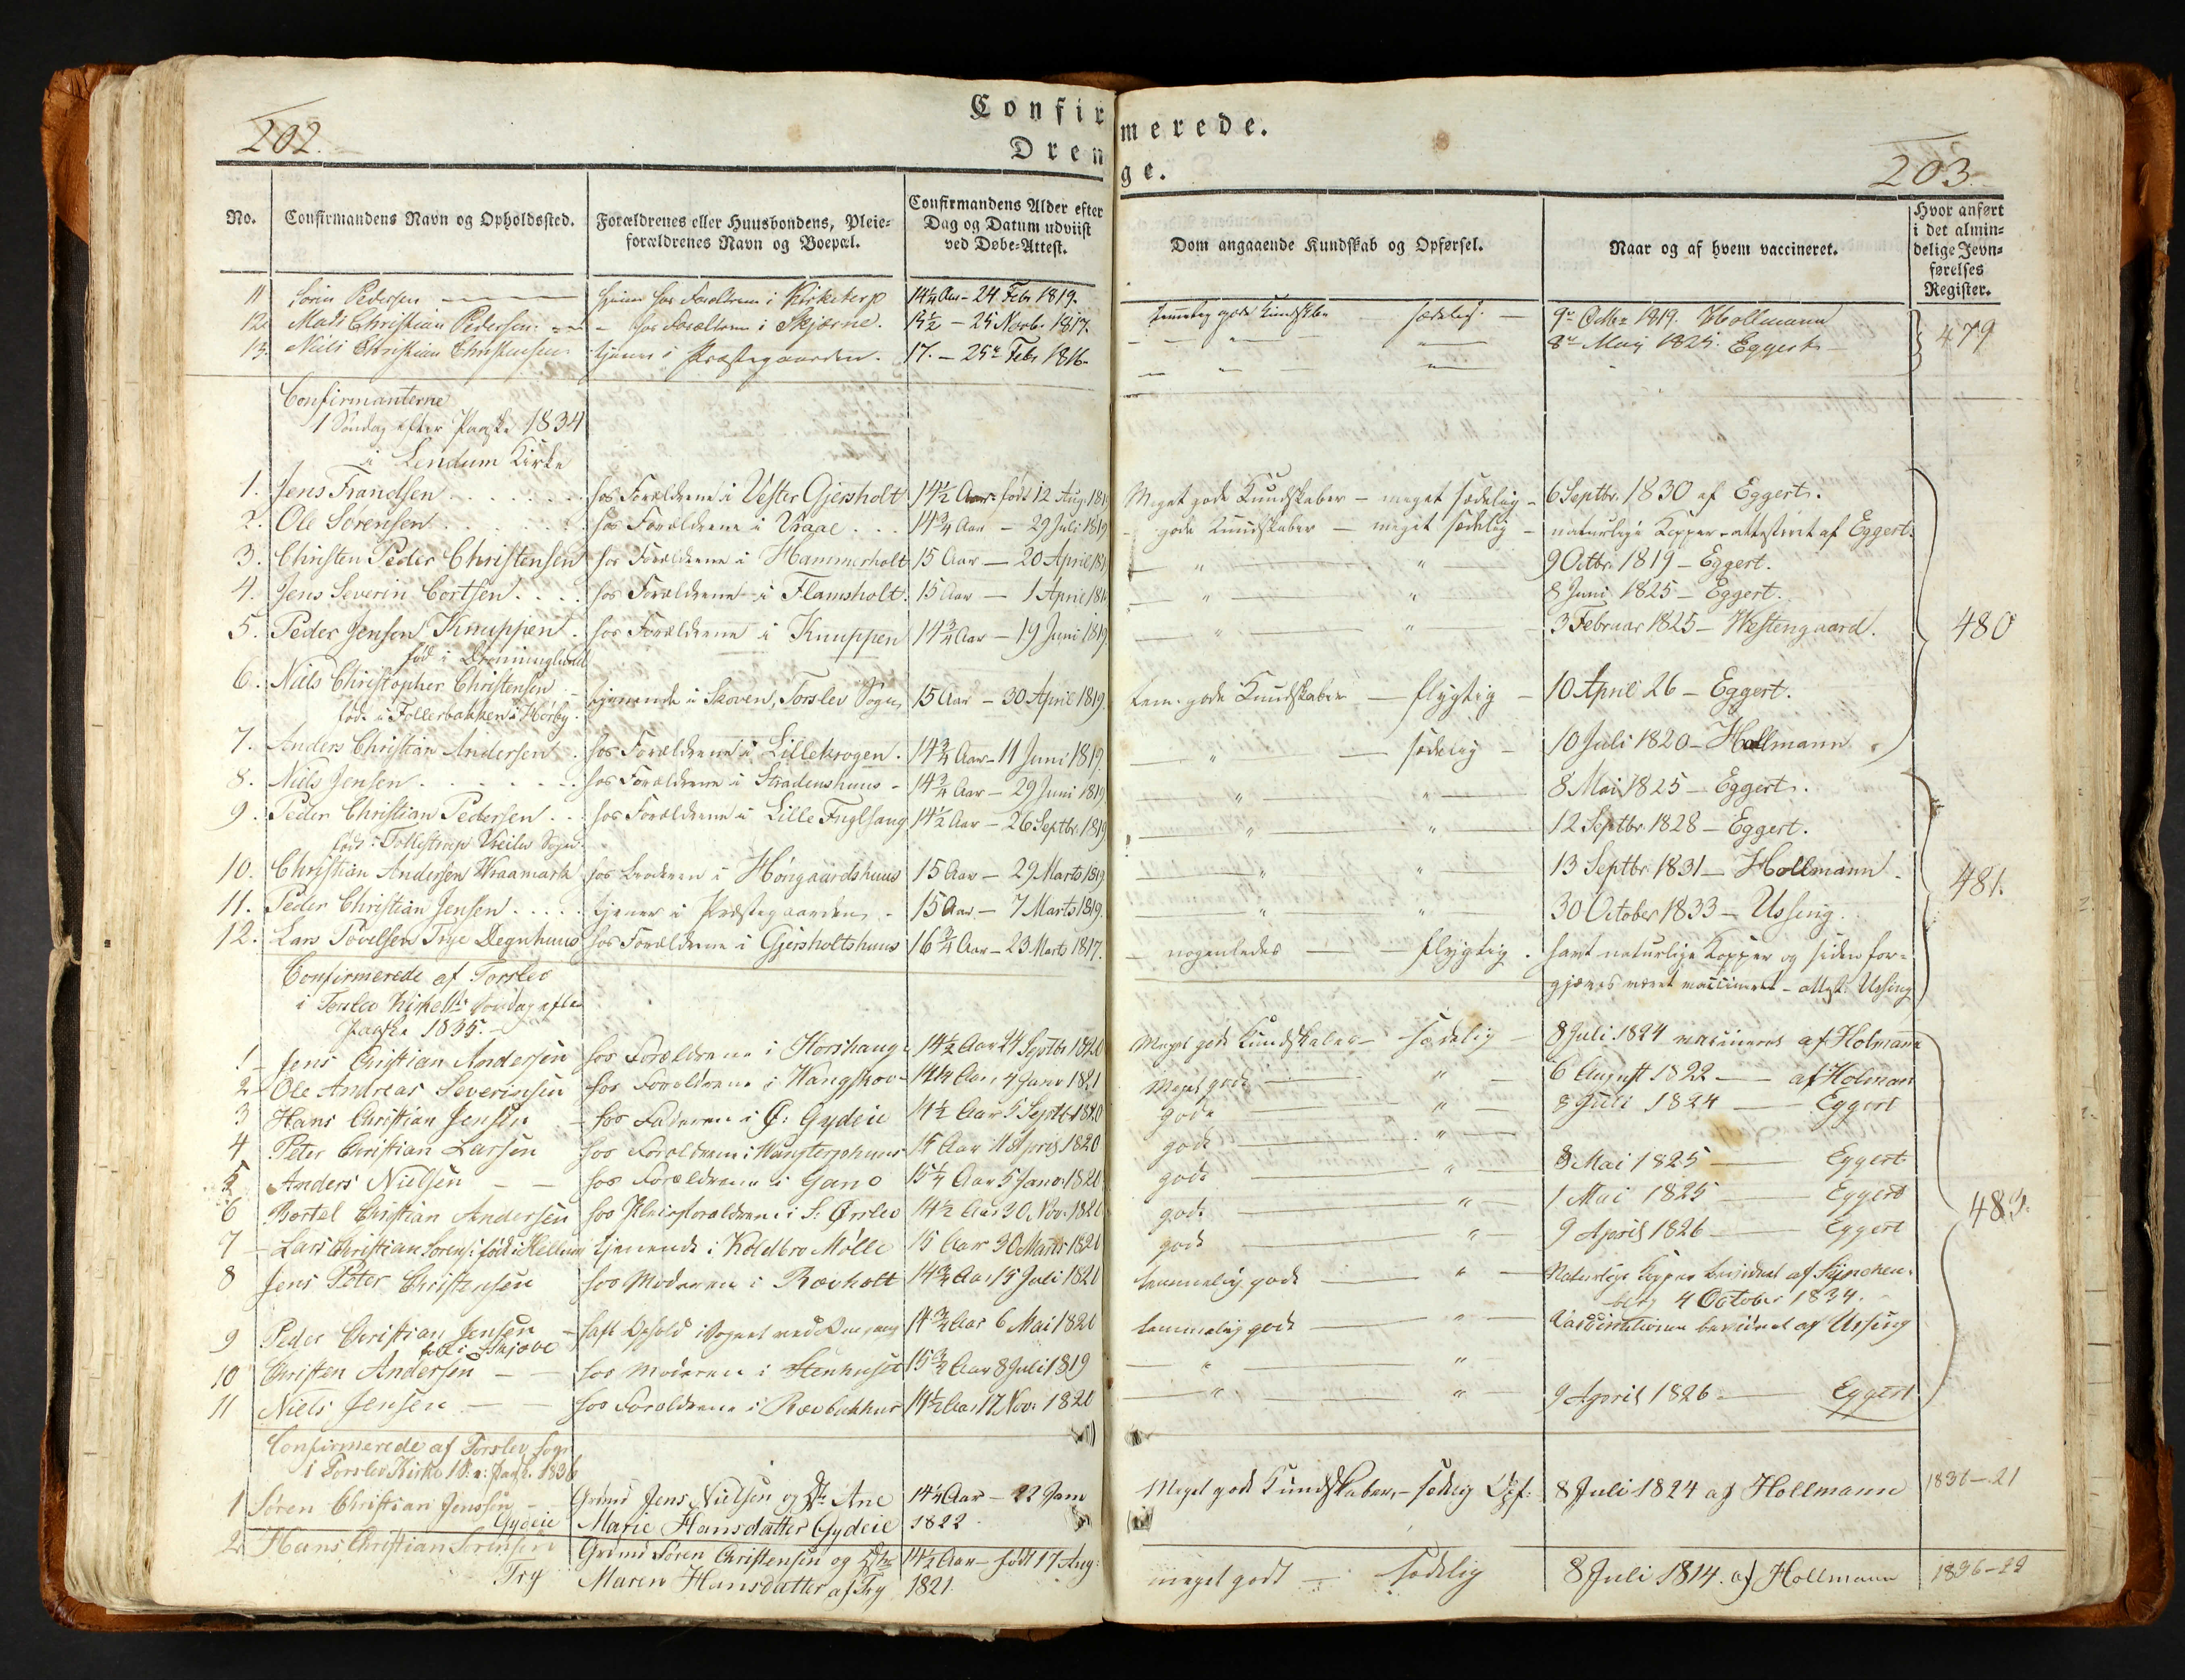 202.
Confirmerede.
Drenge.
203.
No.
Confirmandens Navn og Opholdssted.
Forældrenes eller Huusbondens, Pleie-
forældrenes Navn og Boepæl.
Confirmandens Alder efter
Dag og Datum udviist
ved Døbe-Attest.
Dom angaaende Kundskab og Opførsel.
Naar og af hvem vaccineret.
Hvor anført
i det almin-
delige Jevn-
førelses
Register.
11 Pedersen hos Forældrene i Kirketerp 14¼ Aar - 24 Febr 1819. Kundskber sædelig. 9 Octbr 1819. Hollmann
12 Mads Christian Pedersen hos Forældrene i Skjærne. - 25 Novb. 1817. 8 Maij 1825. Eggert 479
13. Niels Christian Christensen tjener i Præstegaarden. 17. - 25 Febr 1816.
Confirmanterne
1 Søndag efter Paaske 1834
i Lendum Kirke
1. Jens Frandsen hos Forældrene i Vester Gjersholt 14½ Aar født 12 Aug. Meget gode Kundskaber - meget sædelig - 6 Septbr. 1830 af Eggert.
2. Ole Sørensen hos Forældrene i Vraae 14¾ Aar - 29 Juli 1819 gode Kundskaber - meget sædelig - naturlige Kopper - attesteret af Eggert.
3. Christen Peder Christensen hos Forældrene i Hammerholt 15 Aar - 20 April " " 9 Octbr. 1819 - Eggert.
4. Jens Severin Cortsen hos Forældrene i Flamsholt. 15 Aar - 1 April " " 8 Juni 1825 - Eggert.
5. Peder Jensen Knuppen. hos Forældrene i Knuppen 14¾ Aar - 19 Juni 1819. " " 3 Februar 1825 - Westengaard. 480
født i Dronninglund
6. Niels Christopher Christensen tjenende i Skoven, Torslev Sogn, 15 Aar - 30 April 1819. tem. gode Kundskaber - flygtig - 10 April 26 - Eggert.
født i Follerbakken i Hørby.
7. Anders Christian Andersen hos Forældrene i Lillekrogen. 14¾ Aar - 11 Juni 1819. " - sædelig - 10 Juli 1820 - Hollmann
8. Niels Jensen hos Forældrene i Stradenshuus - 14¾ Aar - 29 Juni 1819 " " 8 Mai 1825 - Eggert.
9. Peder Christian Pedersen hos Forældrene i Lille Fuglsang 14½ Aar - 26 Septbr. 1819 " " 12 Septbr 1828 - Eggert.
født i Tollestrup Sogn.
10. Christian Andersen Vraamark hos i Høngaardshuus 15 Aar - 29 Marts 1819 " " 13 Septbr 1831 - Hollmann. 481.
11. Peder Christian Jensen tjener i Præstegaarden - 15 Aar - 7 Marts 1819. " " 30 October 1833 - Ussing.
12. Lars Povelsen Trye Degnhuus hos Forældrene i Gjersholtshuus 16¾ Aar - 23 Marts 1817. nogenledes - flygtig. havt naturlige Kopper og siden for-
gjæves været vaccineret - attest. Ussing
Confirmerede af Torslev
i Torslev Kirke 1ste Søndag efter
Paaske 1835.
1 Jens Christian Andersen hos Forældrene i Horshaug 14½ Aar 24 Septbr 1820 Meget gode Kundskaber - sædelig - 8 Juli 1824 vaccineret af Holmann
2 Ole Andreas Severinsen hos Forældrene i Wangskov 14¼ Aar 4 Janr 1821 Meget gode " 6 August 1822 - af Holman
3 Hans Christian Jensen - hos Faderen i Ø: Gydeie 14½ Aar 5 Septbr 1820 gode " 8 Juli 1824 - Eggert
4 Peter Christian Larsen hos Forældrene i Wangterpshuus 15 Aar 11 April 1820 gode " 8 Mai 1825 - Eggert
5 Anders Nielsen hos Forældrene i Gano 15¼ Aar 5 Janr. 1820 gode " 1 Mai 1825 - Eggert
6 Bertel Christian Andersen hos Pleieforældrene i S: Ørslev 14½ Aar 30 Nov. 1820 gode " 9 April 1826 - Eggert 483.
7 Lars Christian Sørens: født i Hellum tjenende i Koldbro Mølle 15 Aar 30 Marts 1820 gode "
8 Jens Peter Christensen hos Moderen i Rovholt 14¾ Aar 15 Juli 1820 temmelig gode " Naturlige Kopper bevidnet af
4 October 1834.
9 Peder Christian Jensen - i Sognet ved Omgang 14¾ Aar 6 Mai 1820 temmelig gode " Vaccinationen bevidnet af Ussing
født i Skjøve
10 Christen Andersen hos Moderen i Stenhuset 15¾ Aar 8 Juli 1819 " "
11 Niels Jensen hos Forældrene i Rævbakhus 14½ Aar 17 Nov. 1820 " " 9 April 1826 - Eggert
Confirmerede af Torslev Sogn
i Torslev Kirke 1 S: e: Paask. 1836
1 Søren Christian Jensen Grdmd Jens Nielsen og Hst: Ane 14¼ Aar - 22 Jan Meget gode Kundskaber, - sædelig Opf: 8 Juli 1824 af Hollmann 1836-21
Gydeie Marie Hansdatter Gydeie 1822.
2 Hans Christian Sørensen Grdmd Søren Christensen og Hst: 14½ Aar - født 17 Aug: meget godt - sædelig 8 Juli 1814. af Hollmann 1836-22
Try Maren Hansdatter af Try 1821.